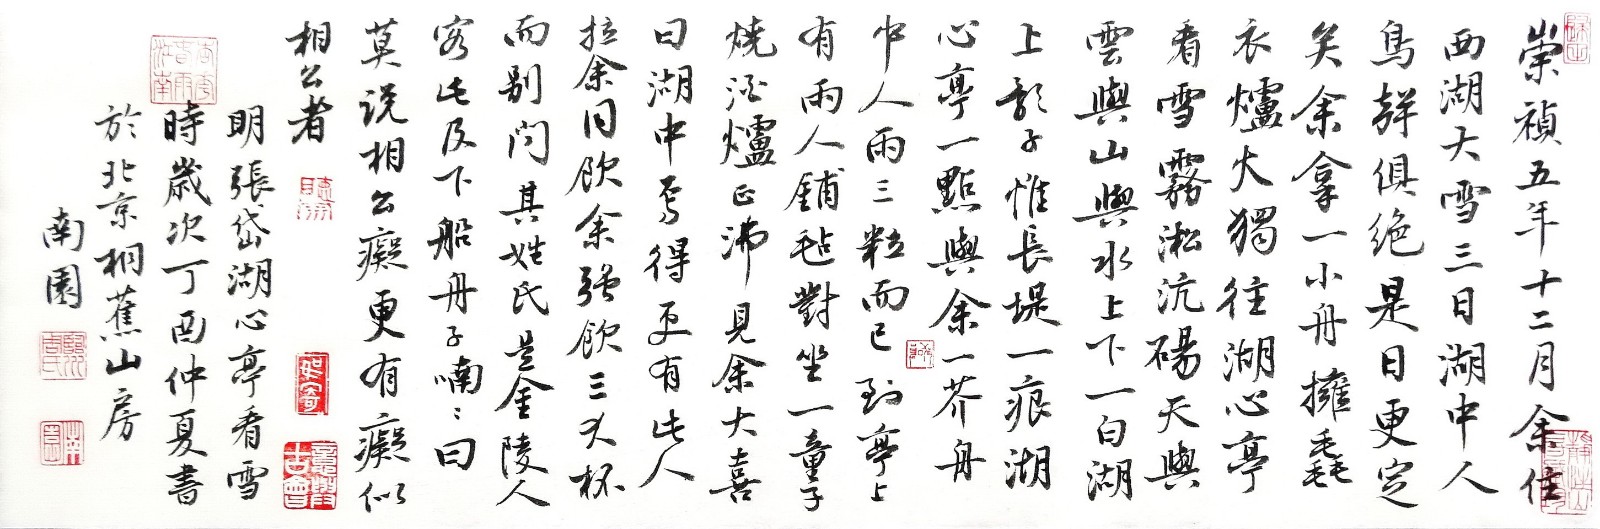 崇禎五年十二月余住
西湖大雪三日湖中人
鳥聲俱絶是日更定
矣余拿一小舟擁毳
衣爐火獨往湖心亭
看雪霧凇沆碭天與
雲與山與水上下一白湖
上影子惟長堤一痕湖
心亭一點與余一芥舟
中人兩三粒而已到亭上
有兩人鋪氈對坐一童子
燒酒爐正沸見余大喜
曰湖中焉得更有此人
拉余同飲余強飲三大杯
而别問其姓氏是金陵人
客此及下船舟子喃〻曰
莫説相公癡更有癡似
相公者
明張岱湖心亭看雪
杏花春雨江南
時歲次丁酉仲夏書
於北京桐蕉山房
南園